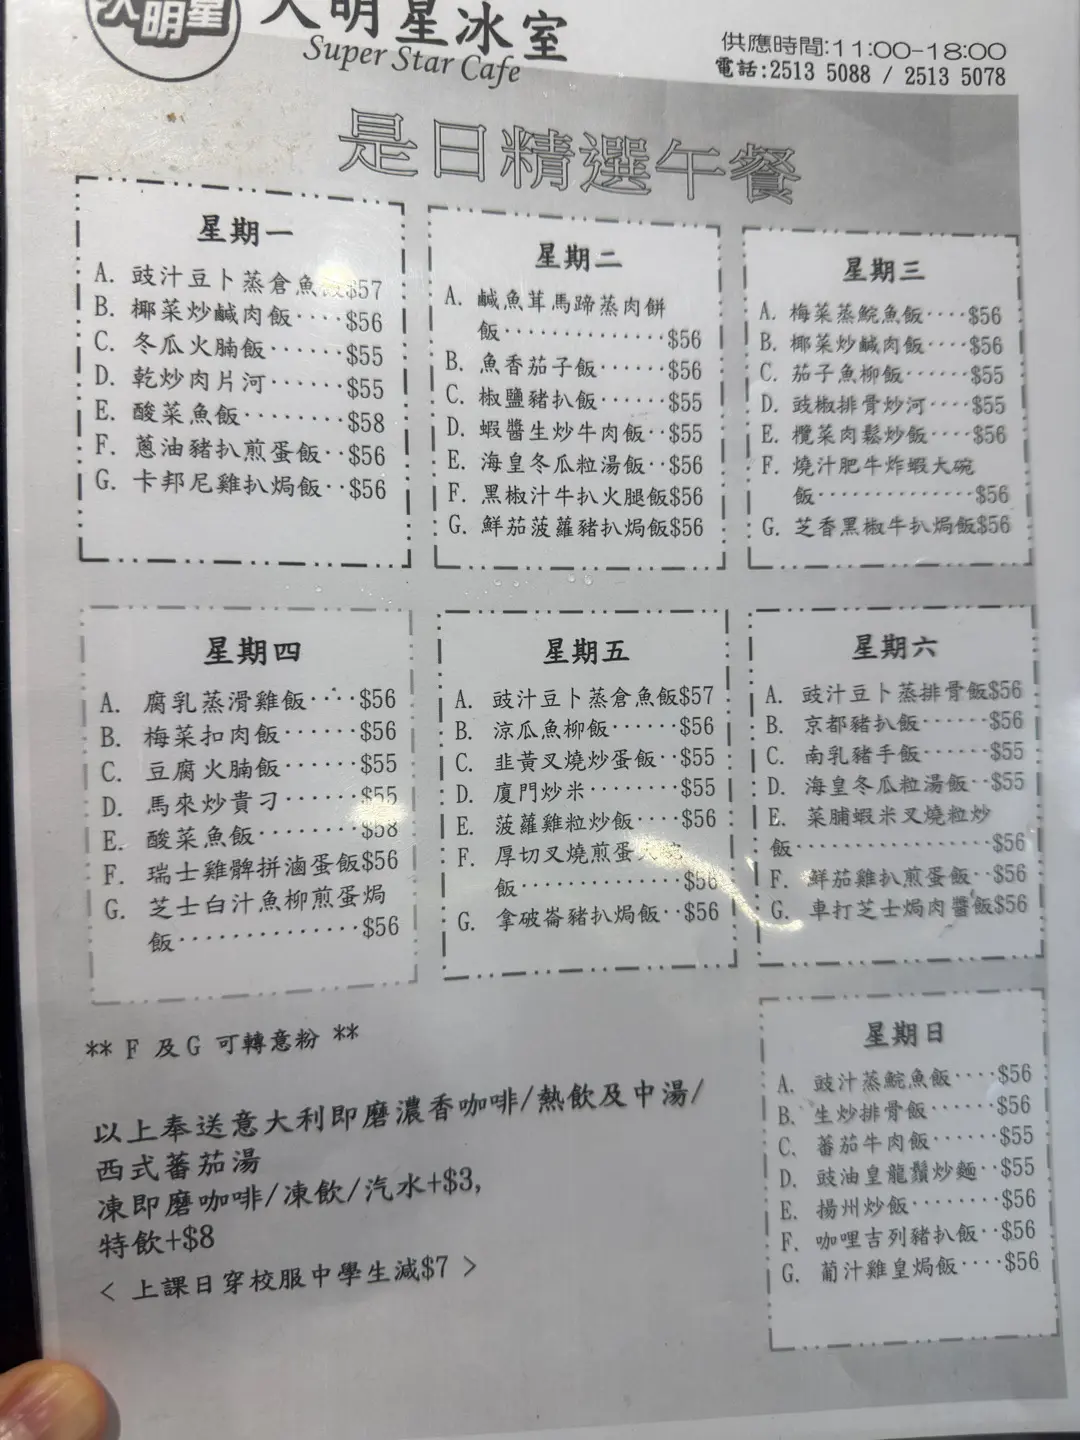 大明星
大明星冰室
Super Star Cafe
供應時間:11:00-18:00
電話:2513 5088 / 2513 5078
是日精選午餐
星期一
A. 豉汁豆卜蒸倉魚飯$57
B. 椰菜炒鹹肉飯····$56
C. 冬瓜火腩飯······$55
D. 乾炒肉片河······$55
E. 酸菜魚飯········$58
F. 蔥油豬扒煎蛋飯··$56
G. 卡邦尼雞扒焗飯··$56
星期二
A. 鹹魚茸馬蹄蒸肉餅
飯············$56
B. 魚香茄子飯······$56
C. 椒鹽豬扒飯······$55
D. 蝦醬生炒牛肉飯··$55
E. 海皇冬瓜粒湯飯··$56
F. 黑椒汁牛扒火腿飯$56
G. 鮮茄菠蘿豬扒焗飯$56
星期三
A. 梅菜蒸鯇魚飯····$56
B. 椰菜炒鹹肉飯····$56
C. 茄子魚柳飯······$55
D. 豉椒排骨炒河····$55
E. 欖菜肉鬆炒飯····$56
F. 燒汁肥牛炸蝦大碗
飯··············$56
G. 芝香黑椒牛扒焗飯$56
星期四
A. 腐乳蒸滑雞飯····$56
B. 梅菜扣肉飯······$56
C. 豆腐火腩飯······$55
D. 馬來炒貴刁······$55
E. 酸菜魚飯········$58
F. 瑞士雞髀拼滷蛋飯$56
G. 芝士白汁魚柳煎蛋焗
飯··············$56
星期五
A. 豉汁豆卜蒸倉魚飯$57
B. 涼瓜魚柳飯······$56
C. 韭黃叉燒炒蛋飯··$55
D. 廈門炒米········$55
E. 菠蘿雞粒炒飯····$56
F. 厚切叉燒煎蛋大碗
飯············$56
G. 拿破崙豬扒焗飯··$56
星期六
A. 豉汁豆卜蒸排骨飯$56
B. 京都豬扒飯······$56
C. 南乳豬手飯······$55
D. 海皇冬瓜粒湯飯··$55
E. 菜脯蝦米叉燒粒炒
飯··············$56
F. 鮮茄雞扒煎蛋飯··$56
G. 車打芝士焗肉醬飯$56
** F 及 G 可轉意粉 **
以上奉送意大利即磨濃香咖啡/熱飲及中湯/
西式蕃茄湯
凍即磨咖啡/凍飲/汽水+$3,
特飲+$8
< 上課日穿校服中學生減$7 >
星期日
A. 豉汁蒸鯇魚飯····$56
B. 生炒排骨飯······$56
C. 蕃茄牛肉飯······$55
D. 豉油皇龍鬚炒麵··$55
E. 揚州炒飯········$56
F. 咖哩吉列豬扒飯··$56
G. 葡汁雞皇焗飯····$56